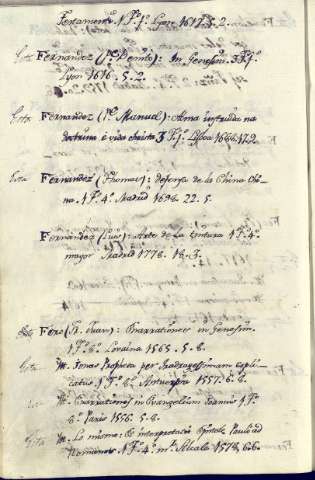 Testamento. 1. Tº. fº. Lyon 1617. 5. 2.
Esta Fernandez (Pe. Benito): In Genesim. 3. Tº. fº.
Lyon 1616. 5. 2.
Esta Fernandez (Pe. Manuel): Alma instruida na
doctrina e vida christã 3 Tº. fº. Lisboa 1688. 17. 2.
Esta Fernandez (Thomas): defensa de la China Chi-
na. 1 Tº. 4º. Madrid 1698. 22. 5.
Fernandez (Luis): Arte de la tintura 1 Tº. 4º.
mayor Madrid 1778. 18. 3.
Fero (Fr. Juan): Enarrationes in Genesim.
1 Tº. 8º. 1565. 5. 8.
Esta Yt. Jonas Propheta per Quadragessimam expli-
catus 1 Tº. 8º. Antuerpia 1557. 6. 8.
Yt. Enarrationes in Evangelium Joannis 1 Tº.
8º. Paris 1556. 5. 8.
Esta Yt. Lo mismo: & interpretatio Epistolæ Pauli ad
Romanos 1 Tº. 4º. mr. Alcala 1578. 6. 6.